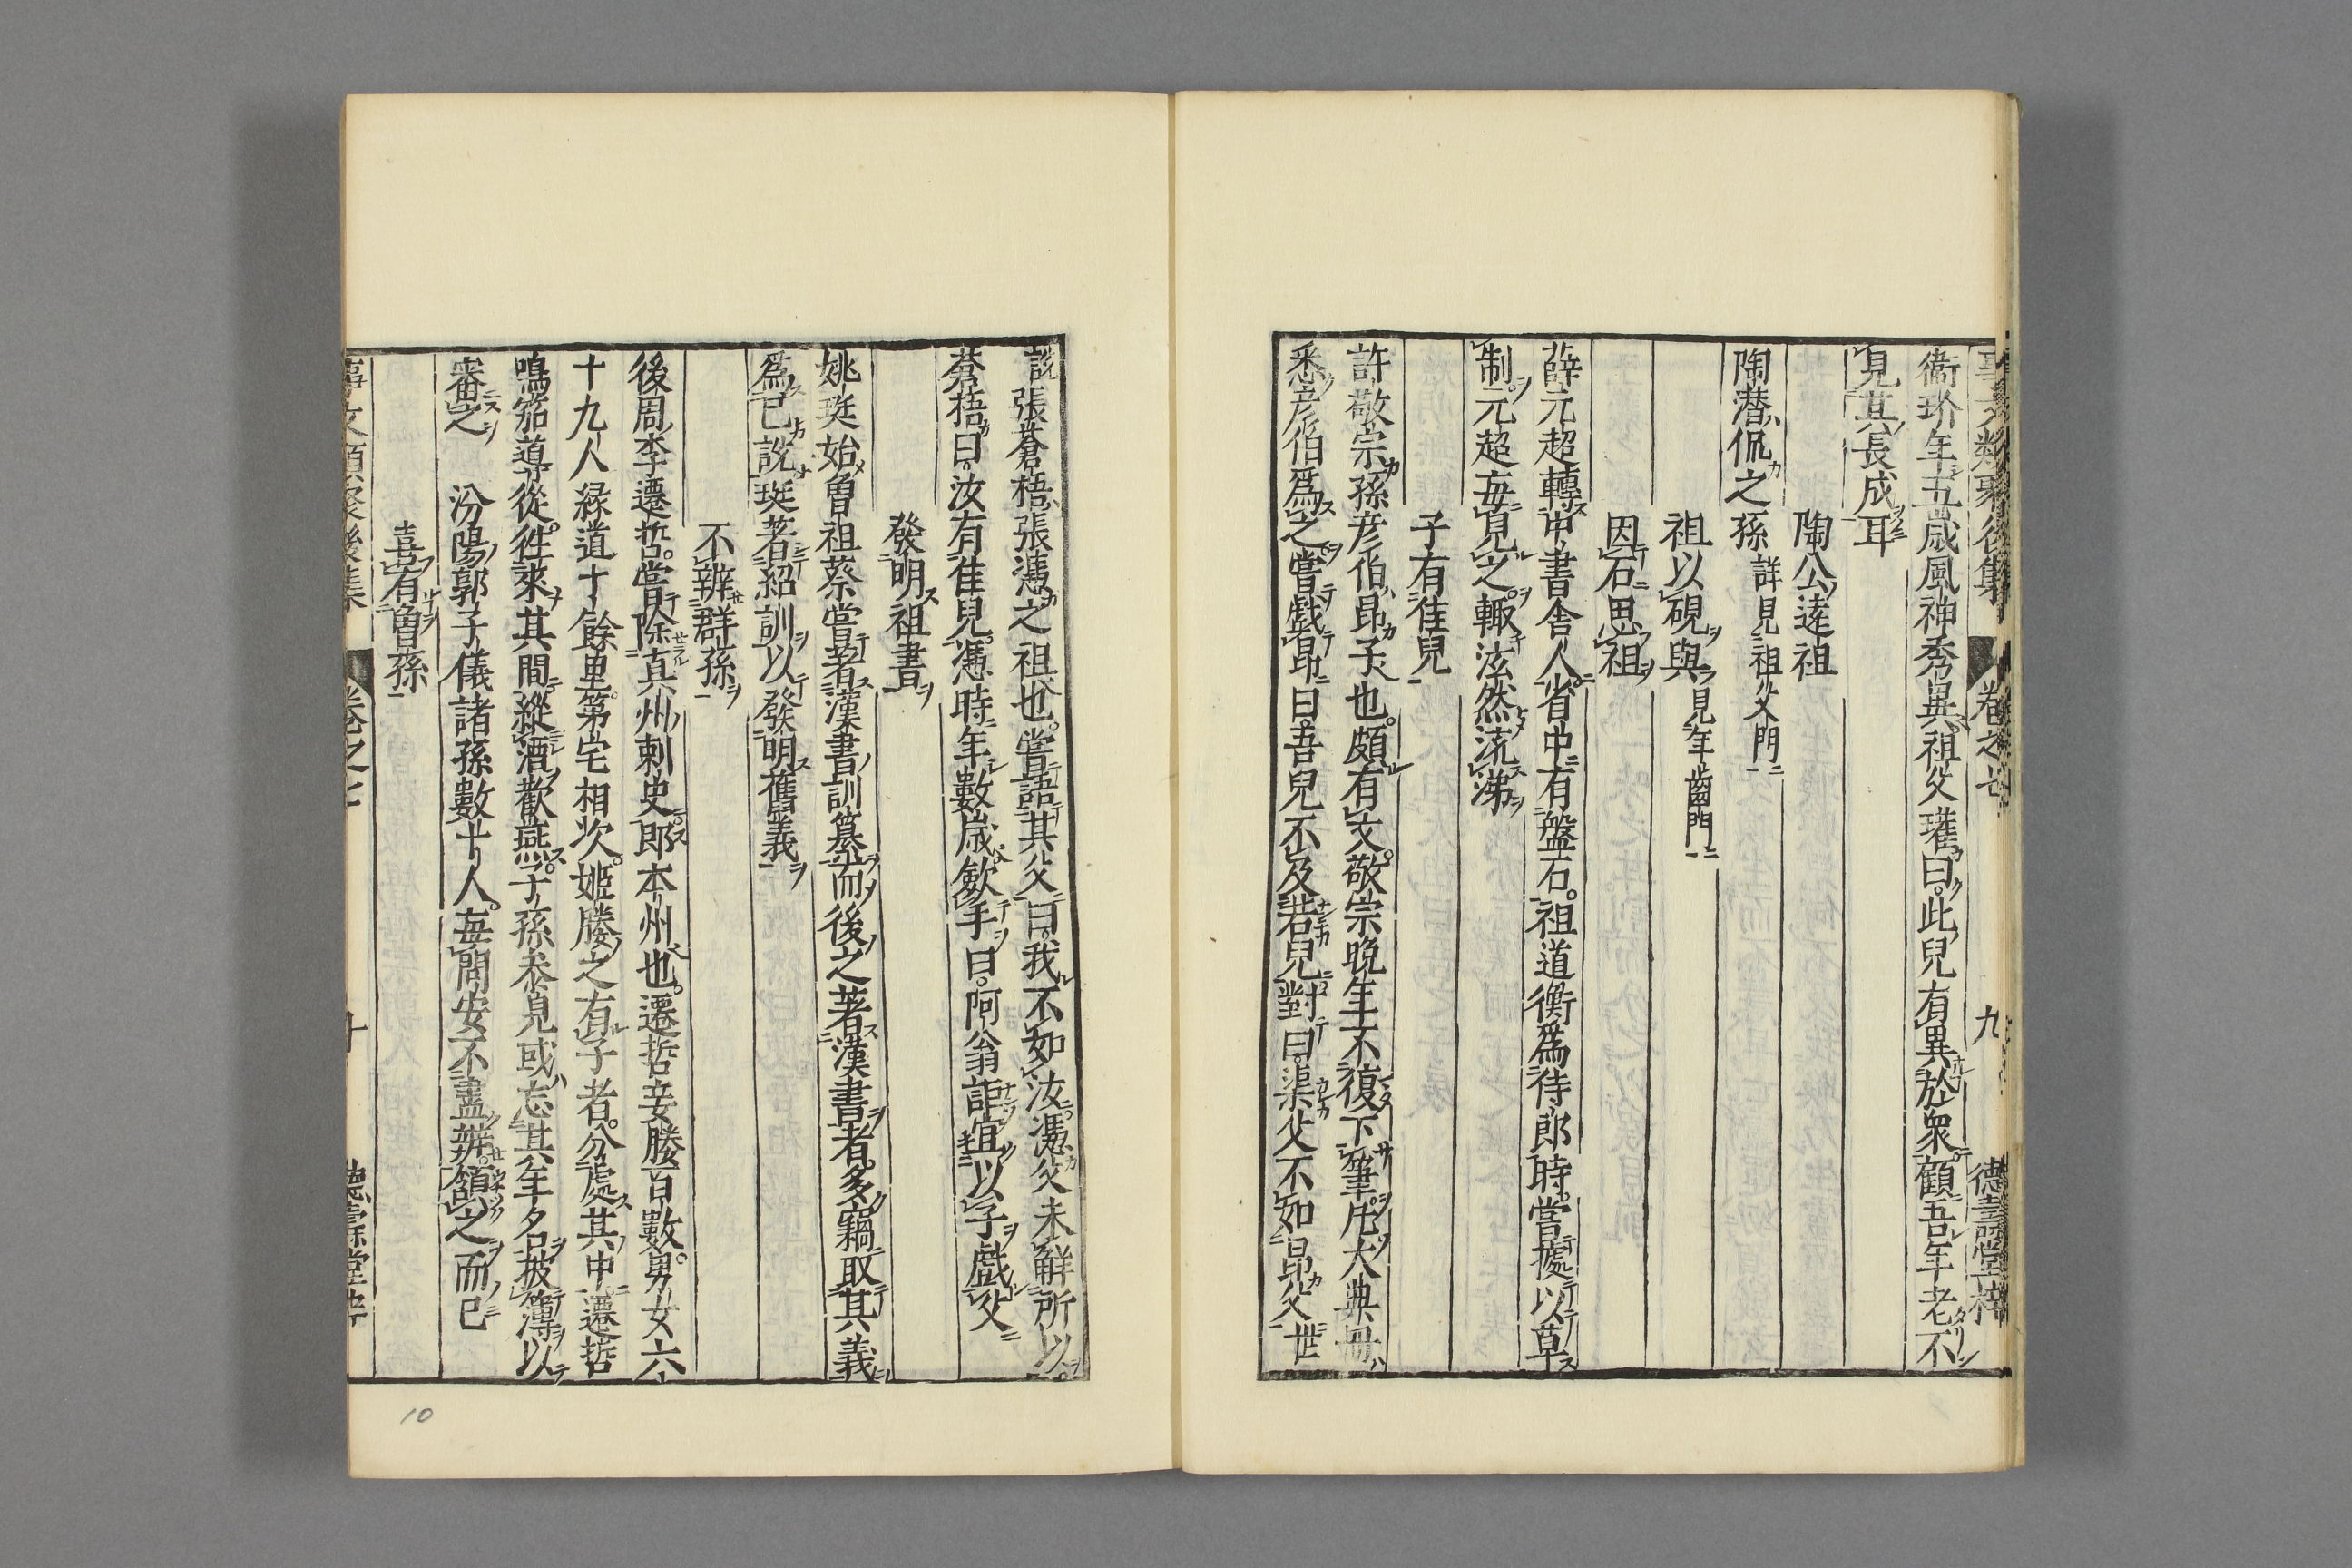 事文類聚後集 卷之七 九 德壽堂梓
衞玠年五歲風神秀異祖父瓘曰此兒有異於衆顧吾年老不
見其長成耳
陶公逹祖
陶潜侃之孫 詳見祖父門
祖以硯與 見年齒門
因石思祖
薛元超轉中書舍人省中有盤石祖道衡爲侍郎時嘗據以草
制元超每見之輙泫然流涕
子有佳兒
許敬宗孫彦伯昂子也頗有文敬宗晚年不復下筆凡大典冊
悉彦伯爲之嘗戲昂曰吾兒不及若兒對曰渠父不如昂父世
說張蒼梧張憑之祖也嘗語其父曰我不如汝憑父未解所以
蒼梧曰汝有佳兒憑時年數歲斂手曰阿翁詎宜以子戲父
發明祖書
姚珽始曾祖蔡嘗著漢書訓纂而後之著漢書者多竊取其義
爲已說珽著紹訓以發明舊義
不辨群孫
後周李遷哲嘗除真州刺史郎本州也遷哲妾媵百數男女六
十九人緣道十餘里第宅相次姬媵之有子者分處其中遷哲
鳴笳導從徃來其間縱酒歡燕子孫叅見或忘其年名披簿以
審之 汾陽郭子儀諸孫數十人每問安不盡辨頷之而已
喜有曾孫
事文類聚後集 卷之七 十 德壽堂梓
10